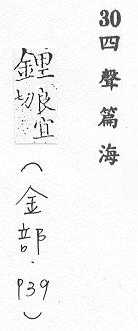 30四聲篇海
鋰良宜切(金部.939)